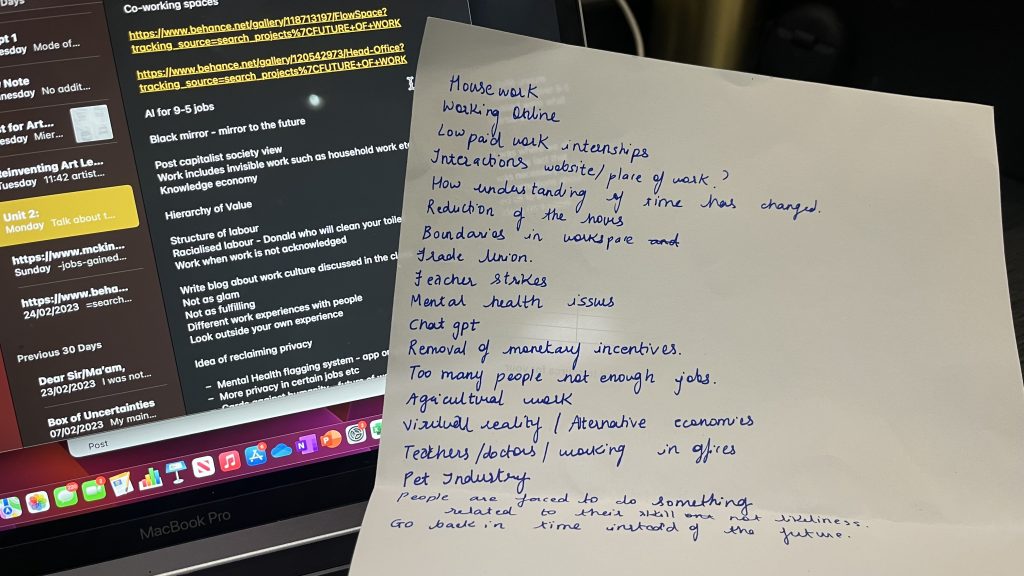 Days
pt 1
esday Mode of...
Note
nesday No addit...
t for Art...
esday Mier...
einventing Art Le...
Tuesday 11:42 artist...
Unit 2:
Monday Talk about t...
https://www.mckin...
Sunday -jobs-gained...
https://www.beha...
24/02/2023 =search...
Previous 30 Days
Dear Sir/Ma'am,
23/02/2023 I was not...
Box of Uncertainties
07/02/2023 My main...
Co-working spaces
https://www.behance.net/gallery/118713197/FlowSpace?
tracking_source=search_projects%7CFUTURE+OF+WORK
https://www.behance.net/gallery/120542973/Head-Office?
tracking_source=search_projects%7CFUTURE+OF+WORK
AI for 9-5 jobs
Black mirror - mirror to the future
Post capitalist society view
Work includes invisible work such as household work etc
Knowledge economy
Hierarchy of Value
Structure of labour
Racialised labour - Donald who will clean your toile
Work when work is not acknowledged
Write blog about work culture discussed in the cl
Not as glam
Not as fulfilling
Different work experiences with people
Look outside your own experience
Idea of reclaiming privacy
– Mental Health flagging system - app or
– More privacy in certain jobs etc
Post
MacBook Pro
House work
Working Online
Low paid work internships
Interactions website/place of work?
How understanding of time has changed.
Reduction of the hours
Boundaries in workspace and
Trade Union.
Teacher strikes
Mental health issues
Chat gpt
Removal of monetary incentives.
Too many people not enough jobs.
Agricultural work
Virtuall reality / Alternative economies
Teachers/doctors/ working in offices
Pet Industry
People are forced to do something
related to their skill not likeliness.
Go back in time instead of the future.